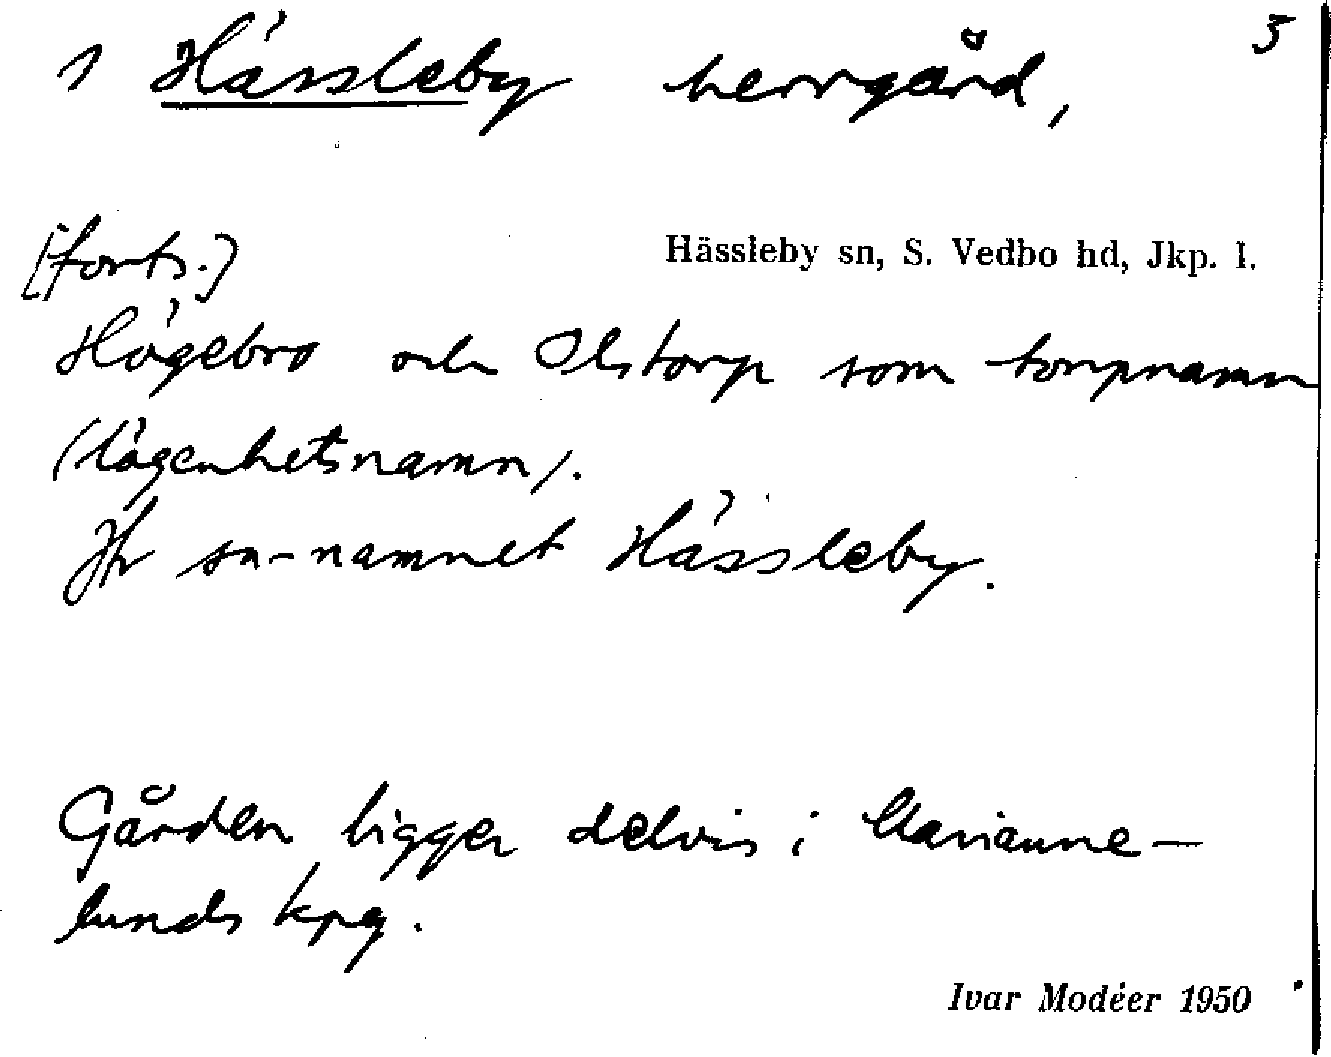 1 Hässleby herrgård, 3
[forts.] Hässleby sn, S. Vedbo hd, Jkp. l.
Högebro och Olstorp som torpnamn
(lägenhetsnamn).
Jfr sn-namnet Hässleby.
Gården ligger delvis i Marianne-
lunds kpg.
Ivar Modéer 1950